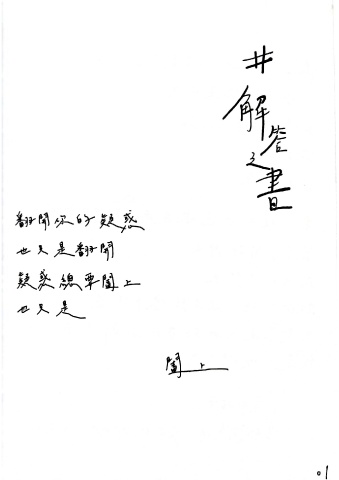 #解答之書
翻開你的疑惑
也只是翻開
疑惑總要闔上
也只是
闔上
01